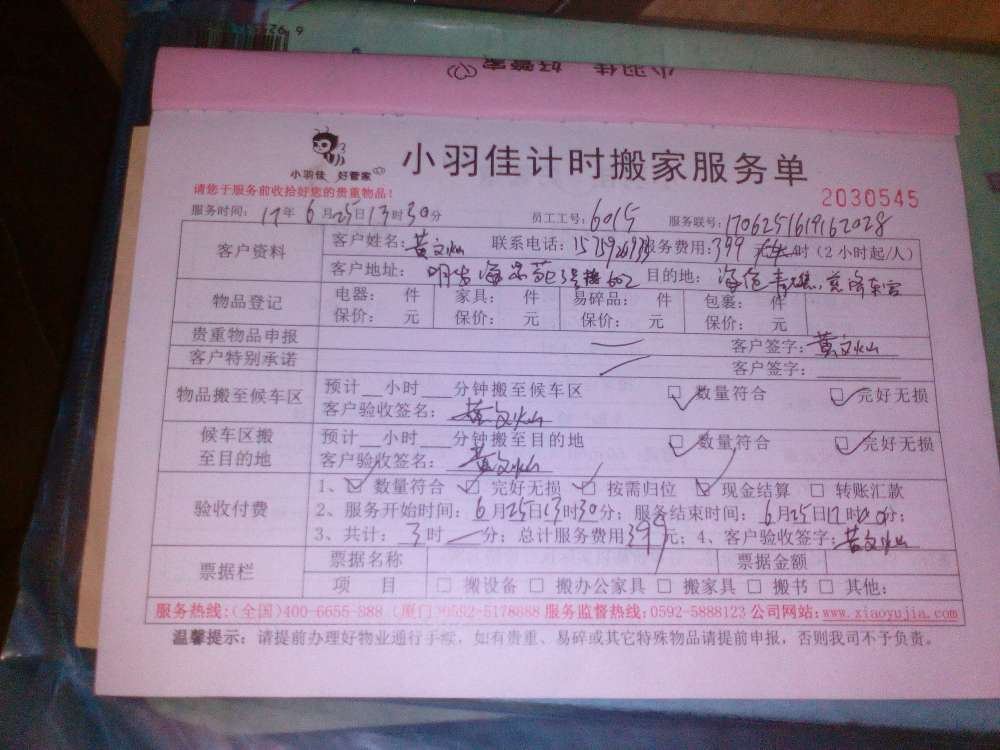 小羽佳 好管家
小羽佳 好管家
小羽佳计时搬家服务单
请您于服务前收拾好您的贵重物品!
2030545
服务时间: 17年 6月25日13时30分 员工工号: 6015 服务联号: 1706251619162028
客户资料 客户姓名: 黄文灿 联系电话: 服务费用: 399 时 (2小时起/人)
客户地址: 明发海景苑 号楼602 目的地: 海沧
物品登记 电器: 件 家具: 件 易碎品: 件 包裹: 件
保价: 元 保价: 元 保价: 元 保价: 元
贵重物品申报 客户签字: 黄文灿
客户特别承诺 客户签字:
物品搬至候车区 预计__小时___分钟搬至候车区 数量符合 完好无损
客户验收签名: 黄文灿
候车区搬至目的地 预计__小时___分钟搬至目的地 数量符合 完好无损
客户验收签名: 黄文灿
验收付费 1、 数量符合 完好无损 按需归位 现金结算 转账汇款
2、服务开始时间: 6月25日13时30分; 服务结束时间: 6月25日17时 分;
3、共计: 3时 一分; 总计服务费用399元; 4、客户验收签字: 黄文灿
票据栏 票据名称 票据金额
项 目 搬设备 搬办公家具 搬家具 搬书 其他:
服务热线:(全国)400-6655-888 (厦门)0592-5178888 服务监督热线:0592-5888123 公司网站:www.xiaoyujia.com
温馨提示: 请提前办理好物业通行手续, 如有贵重、易碎或其它特殊物品请提前申报, 否则我司不予负责。